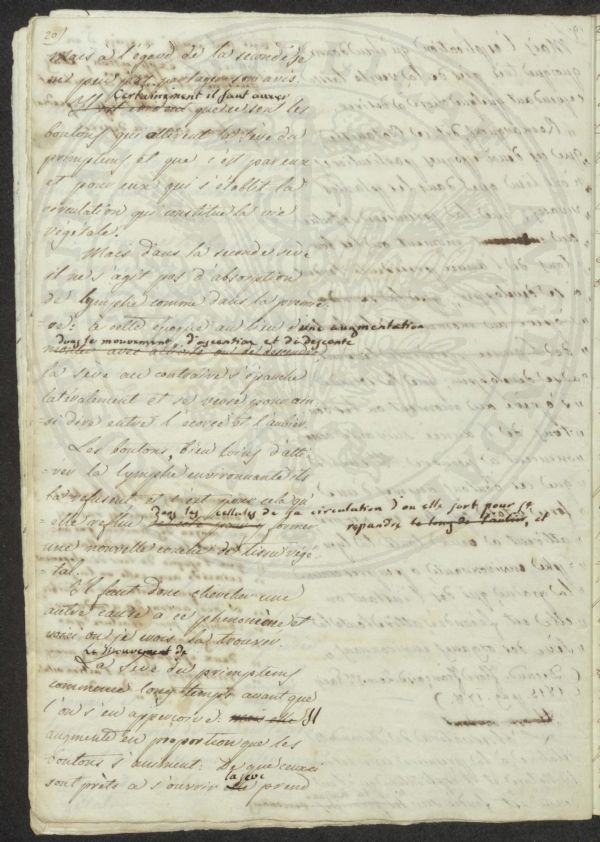 20/
Mais à l'égard de la seconde je
ne puis pas partager son avis.
Certainement il faut avouer
que ce sont les
boutons qui attirent la seve du
printems et que c'est par eux
et pour eux qui s'établit la
circulation qui constitue la vie
vegetale.
Mais dans la seconde seve
il ne s'agit pas d'absorption
de lymphe comme dans la premie-
-re: à cette époque au lieu d'une augmentation
dans le mouvement d'ascention et di desconte
monter avec
la seve au contraire s'épanche
lateralement et se verse pour ain-
si dire entre l'écorce et l'aubier.
Les boutons, bien loins d'atti-
-rer la lymphe environnante ils
la refusent et c'est pour cela qu'
-elle reflue dans les cellules de sa circulation d'ou elle sort pour se
repandre le long de l'aubier, et
former
une nouvelle couche de tissu végé-
-tal.
Il faut donc chercher une
autre cause a ce phénomène et
voici ou je crois la trouver.
Le mouvement de
La seve du printems
commence long-temps avant que
l'on s'en apperçoive: mais elle Il
augmente en proportion que les
boutons s'animent: De que ceux ci
sont prèts a s'ouvrir la seve prend